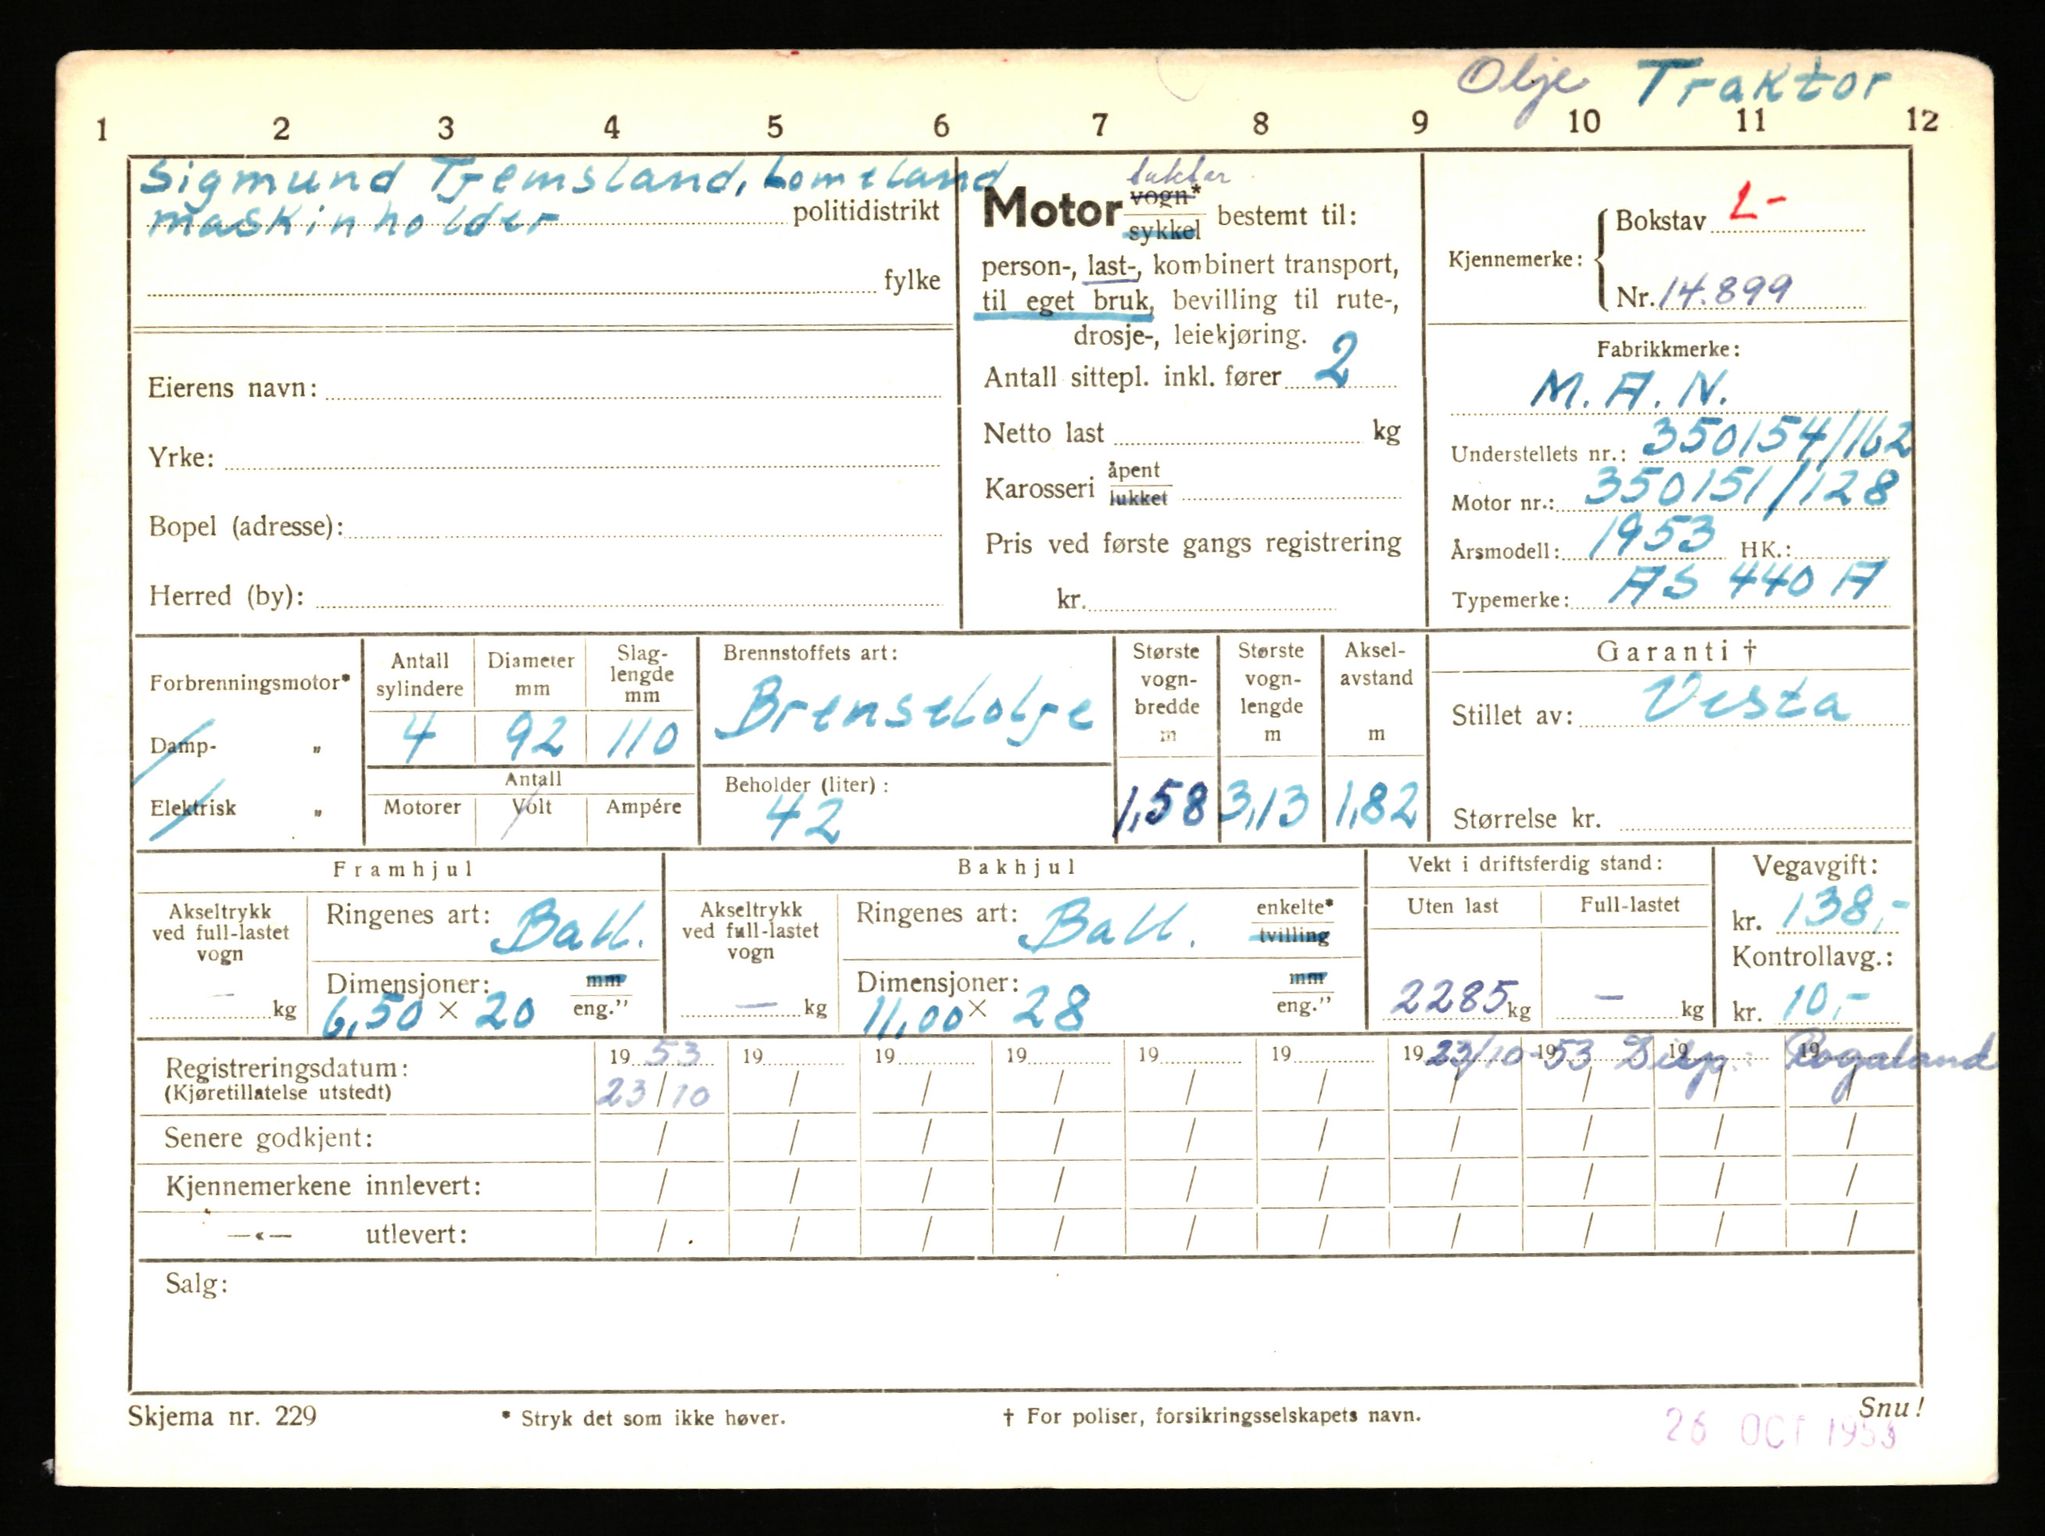 Olje Traktor
1 2 3 4 5 6 7 8 9 10 11 12
Sigmund Tjemsland, Lomeland
maskinholder politidistrikt
fylke
Eierens navn:
Yrke:
Bopel (adresse):
Herred (by):
Motor vogn* sykkel bestemt til:
person-, last-, kombinert transport,
til eget bruk, bevilling til rute-,
drosje-, leiekjøring.
Antall sittepl. inkl. fører 2
Netto last kg
Karosseri åpent lukket
Pris ved første gangs registrering
kr.
Kjennemerke: Bokstav L-
Nr. 14.899
Fabrikkmerke:
M.A.N.
Understellets nr.: 350154/162
Motor nr.: 350151/128
Årsmodell: 1953 HK.:
Typemerke: AS 440 A
Forbrenningsmotor*
Damp- "
Elektrisk "
Antall sylindere 4
Diameter mm 92
Slaglengde mm 110
Antall
Motorer Volt Ampére
Brennstoffets art:
Brenselolje
Beholder (liter):
42
Største vognbredde m 1,58
Største vognlengde m 3,13
Akselavstand m 1,82
Garanti †
Stillet av: Vesta
Størrelse kr.
Framhjul
Akseltrykk ved full-lastet vogn — kg
Ringenes art: Ball.
Dimensjoner: mm
6,50 × 20 eng."
Bakhjul
Akseltrykk ved full-lastet vogn — kg
Ringenes art: Ball. enkelte* tvilling
Dimensjoner: mm
11,00 × 28 eng."
Vekt i driftsferdig stand:
Uten last Full-lastet
2285 kg — kg
Vegavgift:
kr. 138,-
Kontrollavg.:
kr. 10,-
Registreringsdatum: 19 53 19 19 19 19 19 19 19 19 19
(Kjøretillatelse utstedt) 23/10 / / / / / / / / /
23/10-53 Disp. Rogaland
Senere godkjent: / / / / / / / / / /
Kjennemerkene innlevert: / / / / / / / / / /
—«— utlevert: / / / / / / / / / /
Salg:
Skjema nr. 229 * Stryk det som ikke høver. † For poliser, forsikringsselskapets navn. Snu!
26 OCT 1953